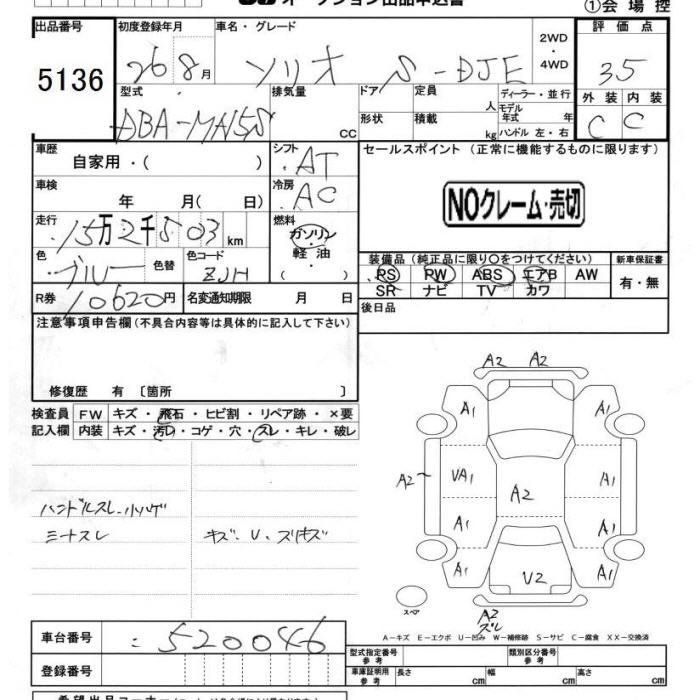 オークション出品申込書
①会場控
出品番号 初度登録年月 車名・グレード 評価点
5136 26 8月 ソリオ S-DJE 2WD ・ 4WD 3.5
型式 排気量 ドア 定員 ディーラー・並行 外装 内装
DBA-MA15S CC 形状 積載 人 モデル年式 年 C C
kg ハンドル 左・右
車歴 シフト セールスポイント (正常に機能するものに限ります)
自家用・( ) AT
車検 冷房
年 月( 日) AC NOクレーム・売切
走行 燃料
15万2千503km ガソリン・軽油・( )
色 色替 色コード 装備品(純正品に限り○をつけてください) 新車保証書
ブルー ZJH PS PW ABS エアB AW 有・無
SR ナビ TV カワ
R券 10620円 名変通知期限 月 日 後日品
注意事項申告欄(不具合内容等は具体的に記入して下さい)
修復歴 有 〔箇所 〕
検査員 FW キズ・飛石・ヒビ割・リペア跡・×要
記入欄 内装 キズ・汚レ・コゲ・穴・スレ・キレ・破レ
A2 A2
A1 A1
A2~ UA1 A1
A2
ハンドルスレ・小ハゲ
A1 A1
ミナスレ キズ、U、スリキズ
A1 U2 A1
スペア
A2
ズレ
A-キズ E-エクボ U-凹み W-補修跡 S-サビ C-腐食 XX-交換済
車台番号 520046
型式指定番号 参考 類別区分番号 参考
登録番号 車庫証明用 参考 長さ cm 幅 cm 高さ cm